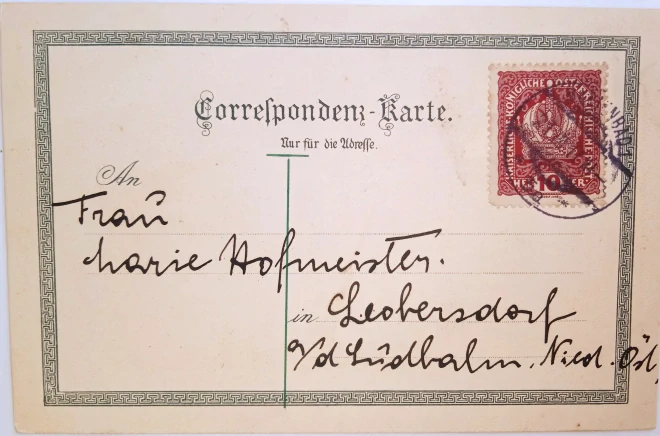 Correspondenz-Karte.
Nur für die Adresse.
KAISERLICHE KÖNIGLICHE ÖSTERREICHISCHE POST
HELLER 10 HELLER
An
Frau
Marie Hofmeister.
in Leobersdorf
a/d Südbahn, Nied. Öst